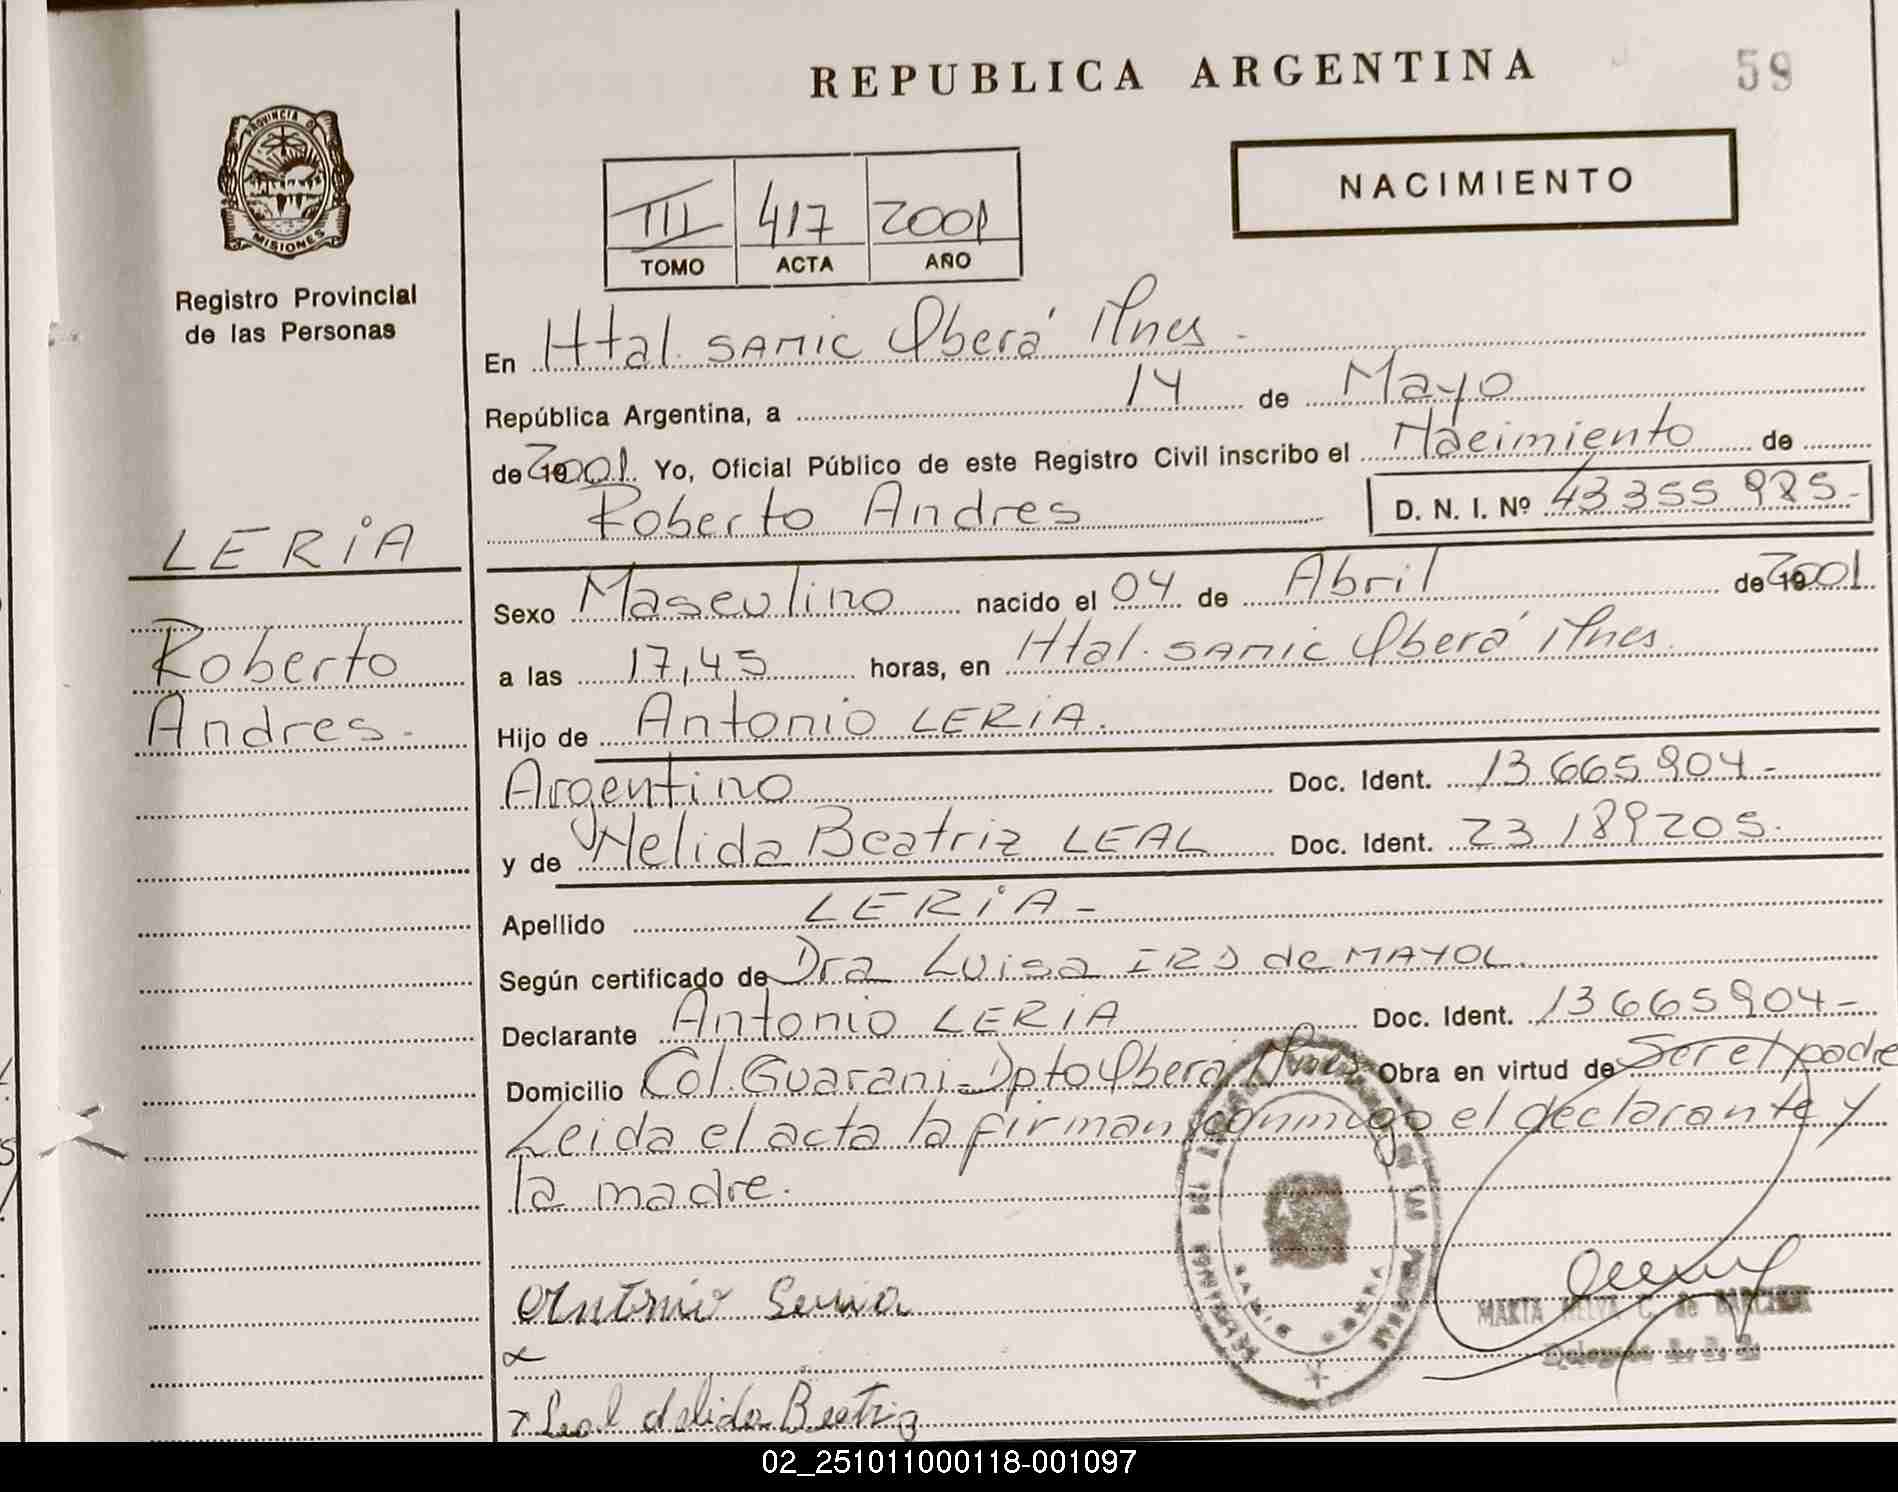 REPUBLICA ARGENTINA
59
PROVINCIA DE
MISIONES
Registro Provincial
de las Personas
NACIMIENTO
III 417 2001
TOMO ACTA AÑO
En Htal. SAMIC Oberá Mnes.
República Argentina, a 14 de Mayo
de 2001. Yo, Oficial Público de este Registro Civil inscribo el Nacimiento de
Roberto Andres D. N. I. Nº 43355925.-
LERIA
Roberto
Andres.-
Sexo Masculino nacido el 04 de Abril de 2001
a las 17,45 horas, en Htal. SAMIC Oberá Mnes.
Hijo de Antonio LERIA.
Argentino Doc. Ident. 13665904.-
y de Nelida Beatriz LEAL Doc. Ident. 23189205.
Apellido LERIA-
Según certificado de Dra Luisa de MAYOL.
Declarante Antonio LERIA Doc. Ident. 13665904-
Domicilio Col. Guarani-Dpto Oberá Mnes Obra en virtud de Ser el padre
Leida el acta la firman conmigo el declarante y
la madre.
Antonio Leria
Leal Nelida Beatriz
MARTA C. de
02_251011000118-001097